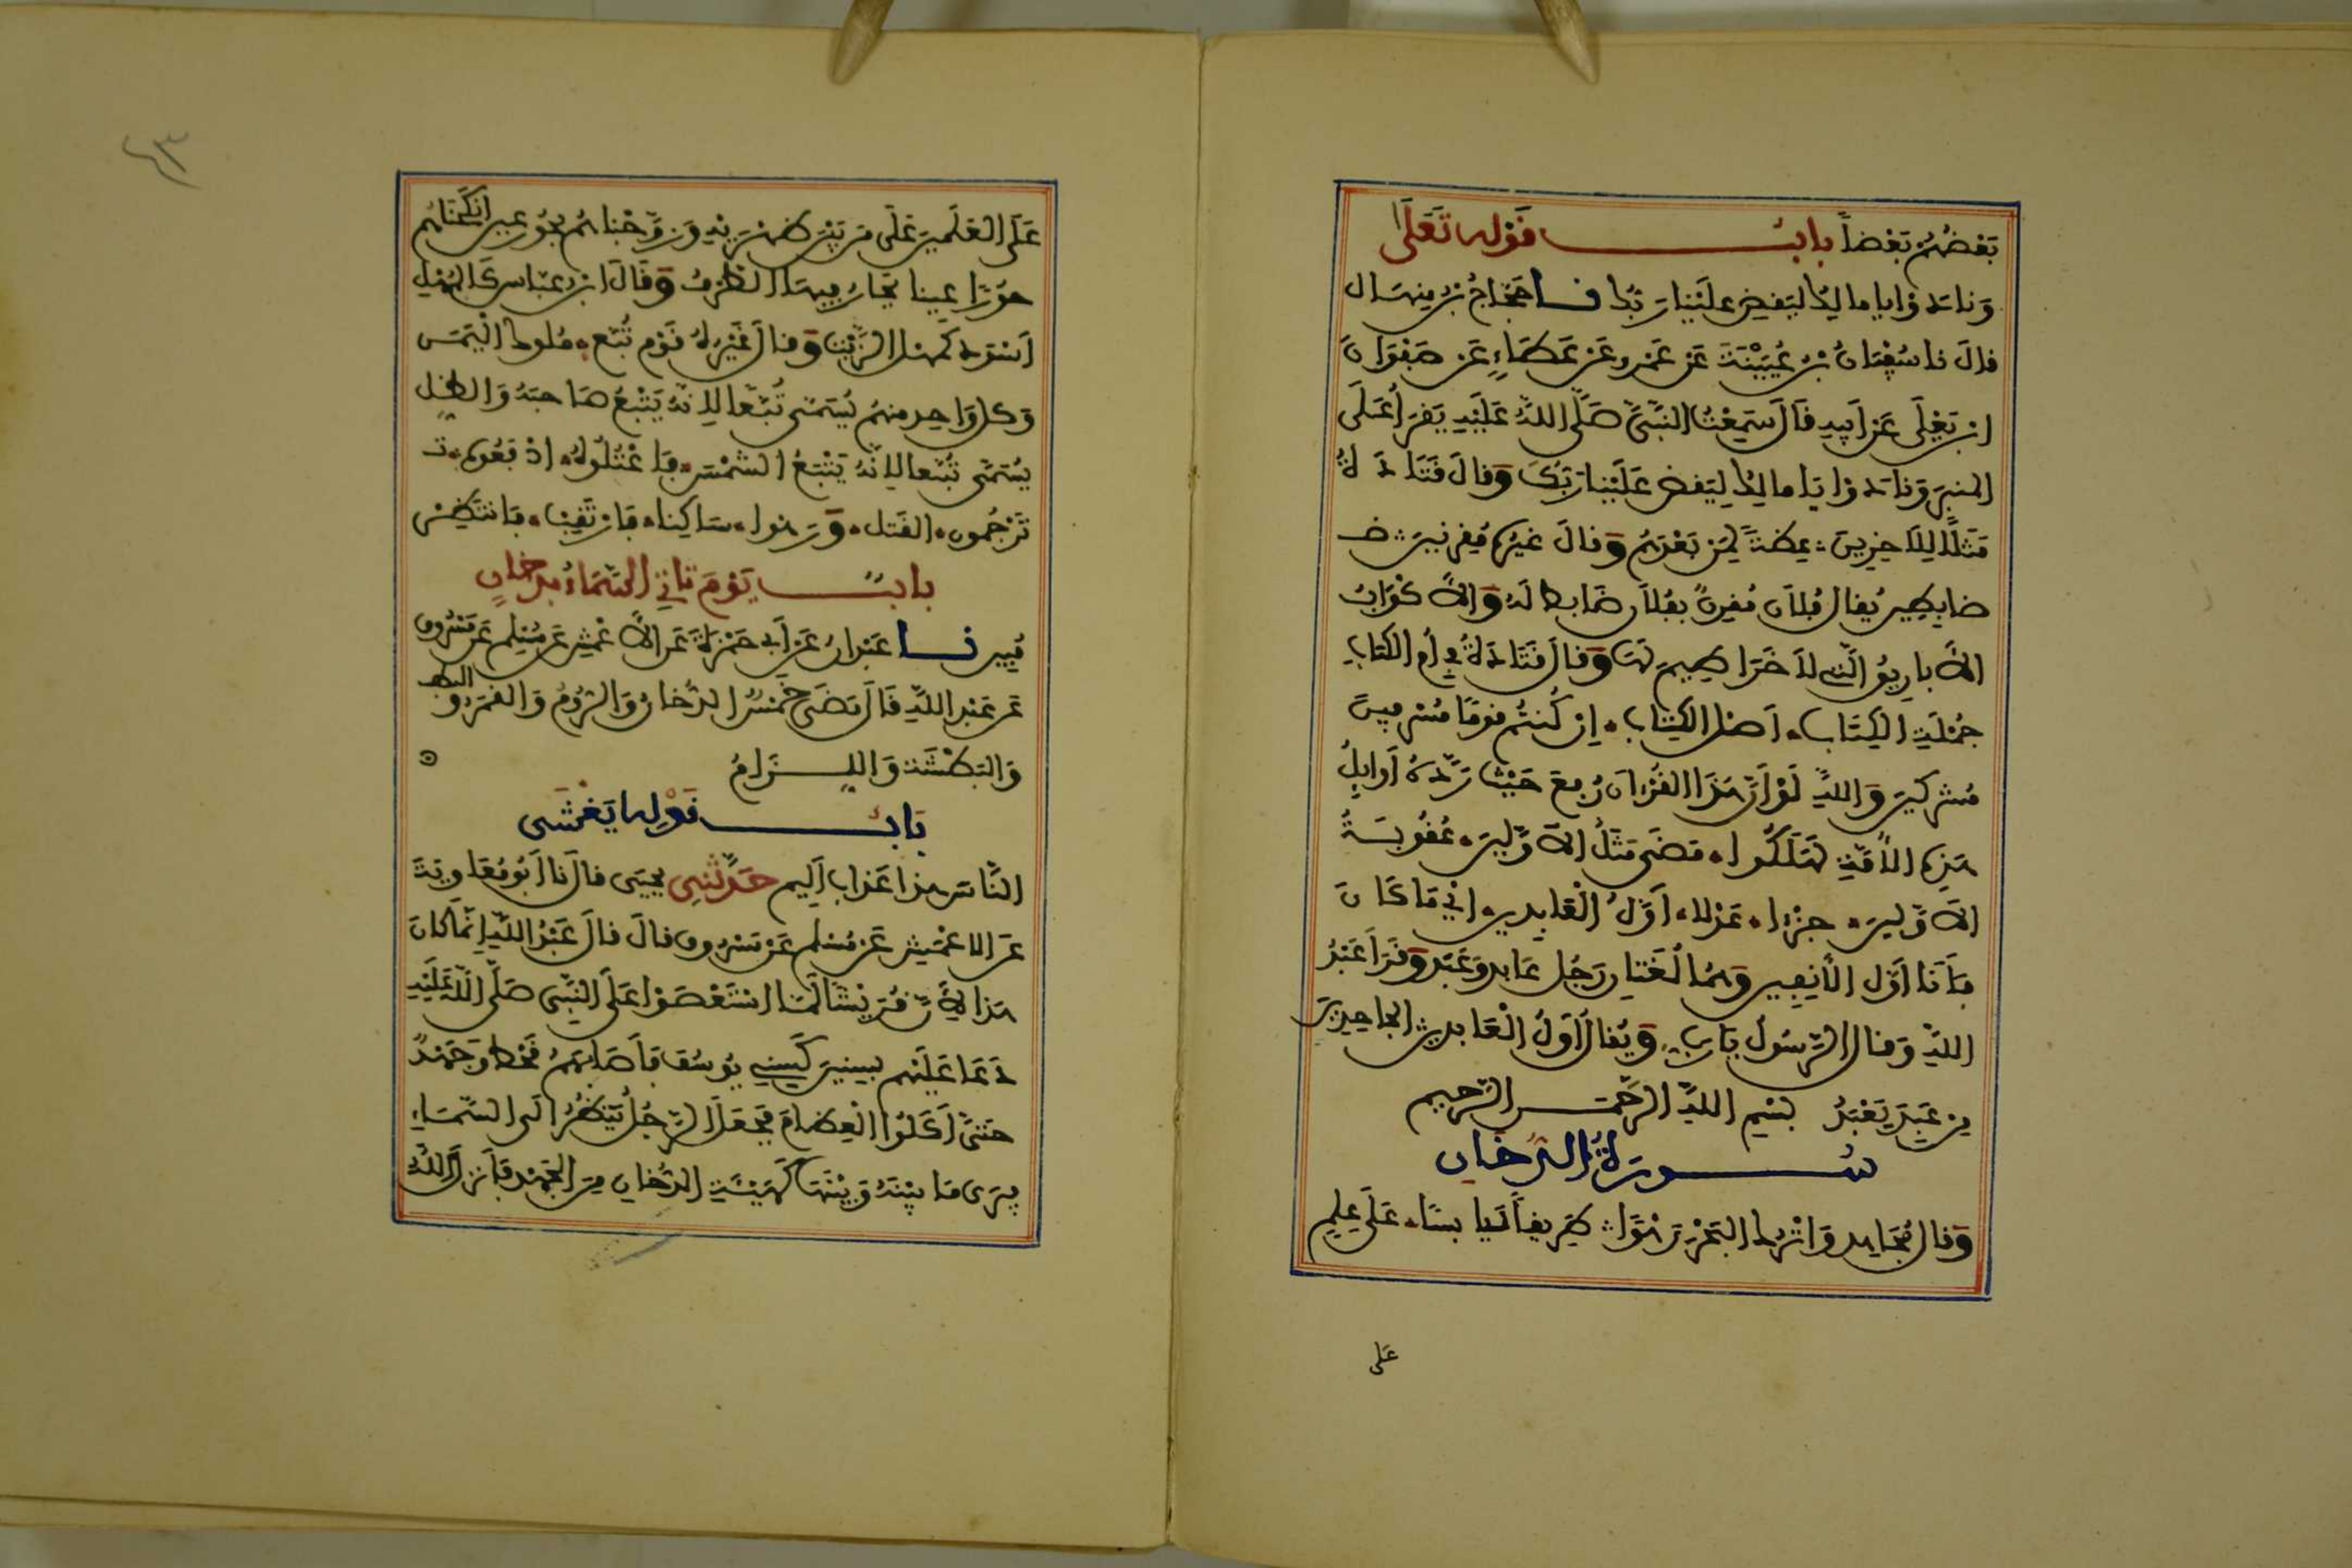 بَعْضُهُمْ بَعْضاً بابُ قَوْلِهِ تَعَلَى
وَنادَوْا يا مالك ليقض علينا ربك نا حَجَّاجُ بْنُ مِنْهَال
قال نا سُفْيَانُ بْنُ عُيَيْنَةَ عَنْ عَمْرٍو عَنْ عَطَاءٍ عَنْ صَفْوَانَ
ابْنِ يَعْلَى عَنْ أبيه قَالَ سَمِعْتُ النَّبِيَّ صَلَّى اللَّهُ عَلَيْهِ يَقْرَأُ عَلَى
المنبر وَنادَوْا يَا مالك لِيَقْضِ عَلَيْنا رَبُّكَ وَقالَ قَتَادَةُ
مَثَلًا لِلآخِرِينَ عِظَةً لِمَنْ بَعْدَهُمْ وَقالَ غَيْرُهُ مُقْرِنِينَ ض
ضابطين يُقال فُلان مُقْرِنٌ بفُلان ضَابط لَهُ وَالأَكْوَابُ
الأَبارِيقُ الَّتِي لا خَرَاطِيمَ لَهَا وَقال قَتَادَةُ فِي أُمِّ الكتاب
جُمْلَةِ الكِتَاب أَصْل الكِتَاب إن كُنتُمْ قومًا مُسْرِفِينَ
مُشْرِكِينَ وَاللهِ لَوْ أَنَّ هَذَا القُرْآنَ رُفِعَ حَيْثُ رَدَّهُ أَوَائِلُ
هَذِهِ الأُمَّةِ لَهَلَكُوا مَضَى مَثَلُ الأَوَّلِينَ عُقُوبَةُ
الأَوَّلِينَ جُزْءا عَدْلا أَوَّلُ الْعَابِدِينَ أي مَا كَانَ
فَأَنَا أَوَّل الأَنِفِين وَهُمَا لُغَتَانِ رَجُل عَابِد وَعَبِد وَقَرَأَ عَبْدُ
اللهِ وَقال الرَّسُولُ يَا رَبِّ وَيُقال أَوَّلُ الْعَابِدِين الجاحِدِينَ
مِنْ عَبِدَ يَعْبَدُ بِسْمِ اللَّهِ الرَّحْمَنِ الرَّحِيمِ
سُورَةُ الدُّخَان
وَقال مُجَاهِد وَاتْرُكِ الْبَحْرَ رَهْوًا طَرِيقًا يَابِسًا عَلَى عِلْمٍ
عَلَى
عَلَى الْعَلَمِينَ عَلَى مَنْ بَيْنَ ظَهْرَيْهِ وَزَوَّجْنَاهُمْ بِحُورٍ عِينٍ أَنْكَحْنَاهُمْ
حُورًا عِينا يَحَارُ فِيهَا الطَّرْفُ وَقَالَ ابْنُ عَبَّاس كَالْمُهْلِ
أَسْوَد كَمُهْلِ الزَّيْت وَقال غَيْرُهُ قَوْم تُبَّع مُلُوك الْيَمَن
وَكل وَاحِد مِنهُمْ يُسَمَّى تُبَّعا لِأنَّهُ يَتْبَعُ صَاحِبَهُ وَالظِّل
يُسَمَّى تُبَّعا لِأَنَّهُ يَتْبَعُ الشَّمْس فَاعْتُلُوهُ ادْفَعُوه
تَرْجُمُون القَتل وَرَهْوا سَاكِنا فَارْتَقِبْ فَانْتَظِرْ
بابٌ يَوْمَ تَأتي السَّمَاءُ بدخان
مُبِينٍ نا عَبْدَانُ عَنْ أَبِي حَمْزَةَ عَن الأَعْمَشِ عَن مُسْلِم عَن مَسْرُوق
عَن عَبْدِ اللَّهِ قَالَ مَضَى خَمْسٌ الدُّخانُ وَالرُّومُ وَالقَمَرُ و
وَالبَطْشَة وَاللِّزَامُ
بَابُ قَوْلِهِ يَغْشَى
النَّاسَ هذا عَذاب أَلِيم حَدَّثَنِي يحيى قال نا أَبُو مُعَاوِيَةَ
عَن الاعْمَشِ عَن مُسْلِم عَنْ مَسْرُوق قالَ قالَ عَبْدُ اللَّهِ إِنَّمَا كَانَ
هَذا لِأَنَّ قُرَيْشًا لَمَّا اسْتَعْصَوْا عَلَى النَّبِيِّ صَلَّى اللَّهُ عَلَيْهِ
دَعَا عَلَيْهِم بسِنِينَ كَسِنِي يُوسُفَ فَأَصَابَهُمْ قَحْط وَجَهْدٌ
حَتَّى أَكَلُوا الْعِظَامَ فَجَعَلَ الرَّجُلُ يَنْظُرُ الى السَّمَاءِ
فَيَرَى مَا بَيْنَهُ وَبَيْنَهَا كَهَيْئَةِ الدُّخَانِ مِنَ الجَهْدِ فَأَنْزَلَ اللَّهُ